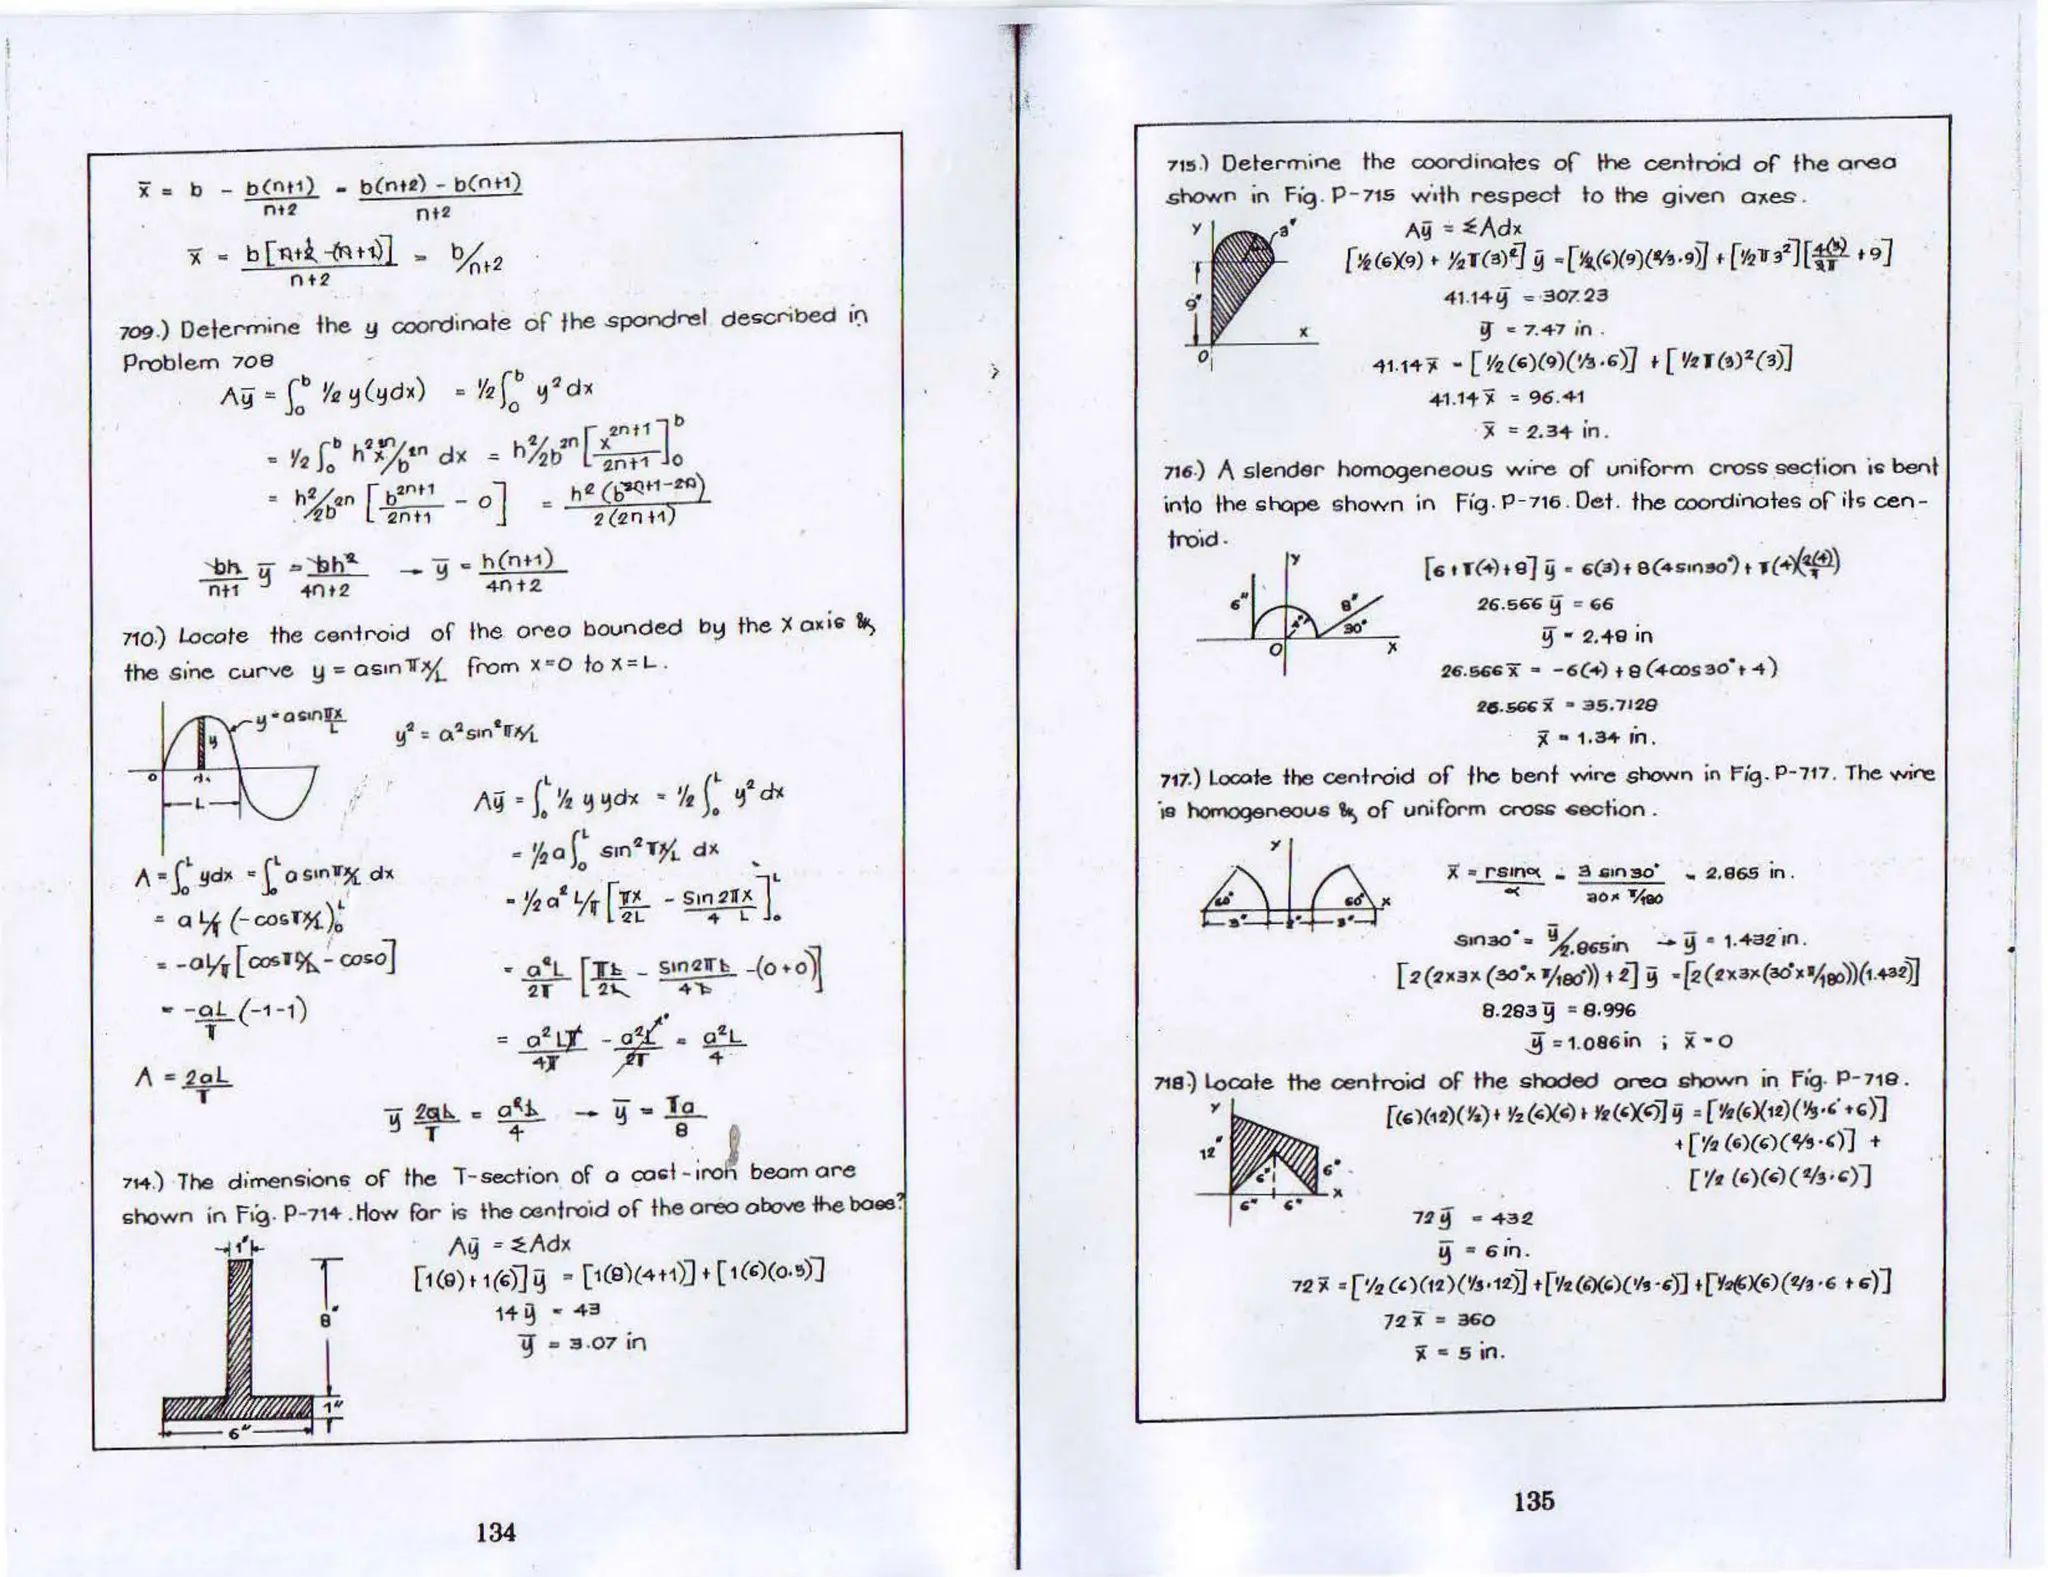 x̄ = b - b(n+1)/n+2 = b(n+2) - b(n+1)/n+2
x̄ = b[n+2-(n+1)]/n+2 = b/n+2
709.) Determine the y coordinate of the spandrel described in
Problem 708
Aȳ = ∫₀ᵇ ½ y(ydx) = ½∫₀ᵇ y²dx
= ½∫₀ᵇ h²x²ⁿ/b²ⁿ dx = h²/2b²ⁿ [x²ⁿ⁺¹/2n+1]₀ᵇ
= h²/2b²ⁿ [b²ⁿ⁺¹/2n+1 - 0] = h²(b²ⁿ⁺¹⁻²ⁿ)/2(2n+1)
bh/n+1 ȳ = bh²/4n+2 → ȳ = h(n+1)/4n+2
710.) Locate the centroid of the area bounded by the X axis &
the sine curve y = asinπx/L from x=0 to x=L.
y=asinπx/L
y
y² = a²sin²πx/L
0 dx
L
Aȳ = ∫₀ᴸ ½ y ydx = ½∫₀ᴸ y²dx
= ½a∫₀ᴸ sin²πx/L dx
A = ∫₀ᴸ ydx = ∫₀ᴸ a sinπx/L dx
= ½a² L/π [πx/2L - Sin2πx/4 L]₀ᴸ
= a L/π (-cosπx/L)₀ᴸ
= -aL/π[cosπL/L - cos0]
= a²L/2π [πL/2L - sin2πL/4L -(0+0)]
= -aL/π (-1-1)
= a²Lπ/4π - a²L/2π = a²L/4
A = 2aL/π
ȳ 2aL/π = a²L/4 → ȳ = πa/8
714.) The dimensions of the T-section of a cast-iron beam are
shown in Fig. P-714. How far is the centroid of the area above the base?
1"
Aȳ = ΣAdx
[1(8)+1(6)]ȳ = [1(8)(4+1)]+[1(6)(0.5)]
8"
14ȳ = 43
ȳ = 3.07 in
1"
6"
134
715.) Determine the coordinates of the centroid of the area
shown in Fig. P-715 with respect to the given axes.
y 3"
9"
x
0
Aȳ = ΣAdx
[½(6)(9) + ½π(3)²]ȳ =[½(6)(9)(2/3·9)] + [½π3²][4(3)/3π +9]
41.14ȳ = 307.23
ȳ = 7.47 in.
41.14x̄ = [½(6)(9)(1/3·6)] + [½π(3)²(3)]
41.14x̄ = 96.41
x̄ = 2.34 in.
716.) A slender homogeneous wire of uniform cross section is bent
into the shape shown in Fig. P-716. Det. the coordinates of its cen-
troid.
y
6" 4" 8" 30°
0 x
[6+π(4)+8]ȳ = 6(3)+8(4sin30°)+π(4)(2(4)/π)
26.566ȳ = 66
ȳ = 2.48 in
26.566x̄ = -6(4)+8(4cos30°+4)
26.566x̄ = 35.7128
x̄ = 1.34 in.
717.) Locate the centroid of the bent wire shown in Fig. P-717. The wire
is homogeneous & of uniform cross section.
y
60° 60° x
3" 3"
x̄ = rsinα/α = 3 sin30°/30x π/180 = 2.865 in.
sin30° = ȳ/2.865in → ȳ = 1.432in.
[2(2x3x(30°xπ/180°))+2]ȳ =[2(2x3x(30°xπ/180))(1.432)]
8.283ȳ = 8.996
ȳ = 1.086in ; x̄ = 0
718.) Locate the centroid of the shaded area shown in Fig. P-718.
y
12"
6" 6"
x
6" 6"
[(6)(12)(½)+½(6)(6)+½(6)(6)]ȳ =[½(6)(12)(1/3·6+6)]
+[½(6)(6)(2/3·6)] +
[½(6)(6)(2/3·6)]
72ȳ = 432
ȳ = 6in.
72x̄ =[½(6)(12)(1/3·12)]+[½(6)(6)(1/3·6)]+[½(6)(6)(2/3·6+6)]
72x̄ = 360
x̄ = 5 in.
135